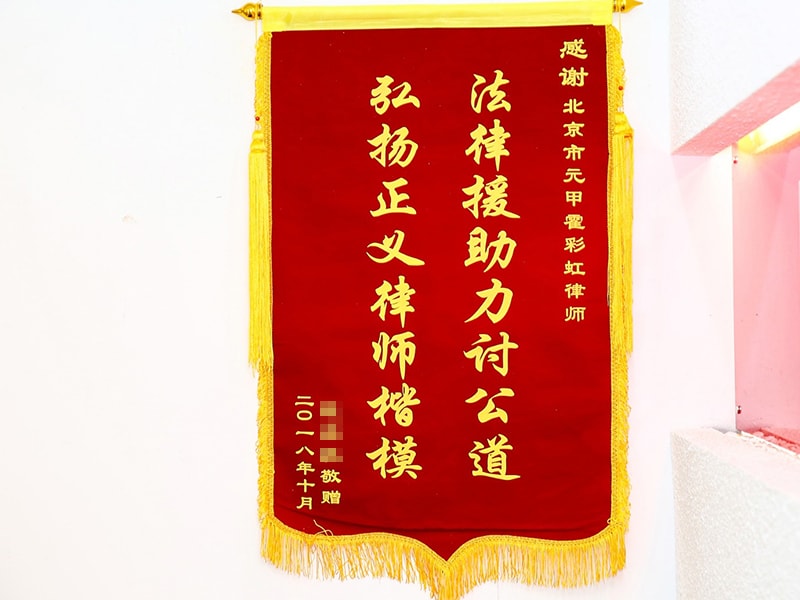 感谢北京市元甲霍彩虹律师
法律援助力讨公道
弘扬正义律师楷模
敬赠
二〇一八年十月